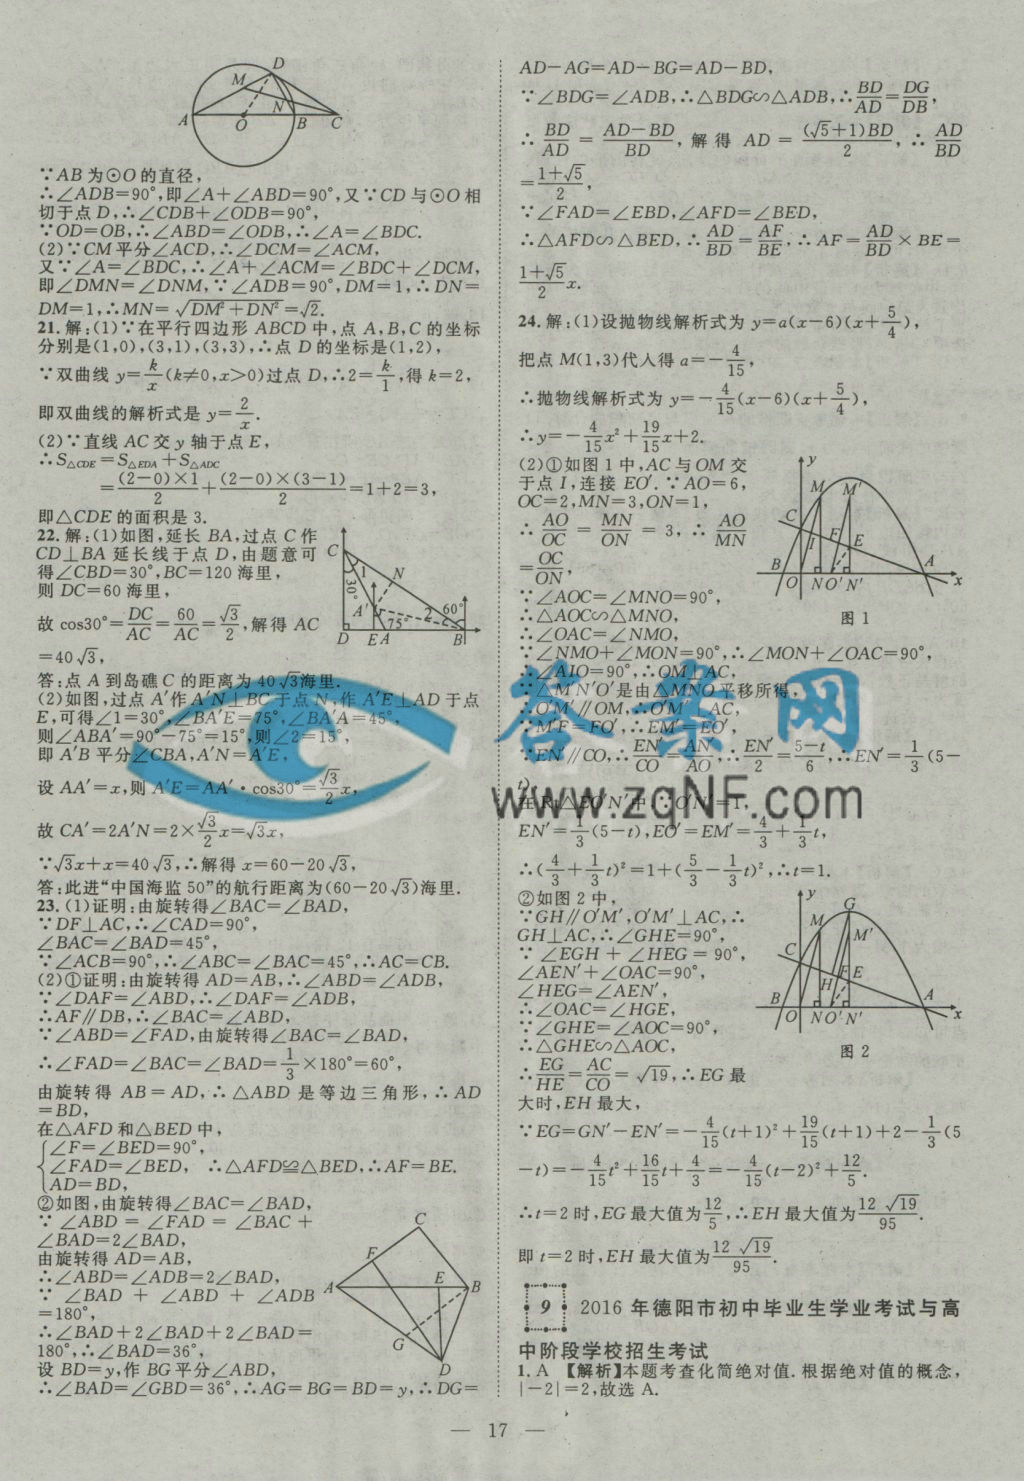 ∵AB为⊙O的直径,
∴∠ADB=90°,即∠A+∠ABD=90°,又∵CD与⊙O相
切于点D,∴∠CDB+∠ODB=90°,
∵OD=OB,∴∠ABD=∠ODB,∴∠A=∠BDC.
(2)∵CM平分∠ACD,∴∠DCM=∠ACM,
又∵∠A=∠BDC,∴∠A+∠ACM=∠BDC+∠DCM,
即∠DMN=∠DNM,∵∠ADB=90°,DM=1,∴DN=
DM=1,∴MN=√(DM²+DN²)=√2.
21.解:(1)∵在平行四边形ABCD中,点A,B,C的坐标
分别是(1,0),(3,1),(3,3),∴点D的坐标是(1,2),
∵双曲线y=k/x(k≠0,x>0)过点D,∴2=k/1,得k=2,
即双曲线的解析式是y=2/x.
(2)∵直线AC交y轴于点E,
∴S△CDE=S△EDA+S△ADC
=(2-0)×1/2+(2-0)×(3-1)/2=1+2=3,
即△CDE的面积是3.
22.解:(1)如图,延长BA,过点C作
CD⊥BA延长线于点D,由题意可
得∠CBD=30°,BC=120海里,
则DC=60海里,
故cos30°=DC/AC=60/AC=√3/2,解得AC
=40√3,
答:点A到岛礁C的距离为40√3海里.
(2)如图,过点A′作A′N⊥BC于点N,作A′E⊥AD于点
E,可得∠1=30°,∠BA′E=75°,∠BA′A=45°,
则∠ABA′=90°-75°=15°,则∠2=15°,
即A′B平分∠CBA,A′N=A′E,
设AA′=x,则A′E=AA′·cos30°=√3/2x,
故CA′=2A′N=2×√3/2x=√3x,
∵√3x+x=40√3,∴解得x=60-20√3,
答:此进“中国海监50”的航行距离为(60-20√3)海里.
23.(1)证明:由旋转得∠BAC=∠BAD,
∵DF⊥AC,∴∠CAD=90°,
∠BAC=∠BAD=45°,
∵∠ACB=90°,∴∠ABC=∠BAC=45°,∴AC=CB.
(2)①证明:由旋转得AD=AB,∴∠ABD=∠ADB,
∵∠DAF=∠ABD,∴∠DAF=∠ADB,
∴AF∥DB,∴∠BAC=∠ABD,
∵∠ABD=∠FAD,由旋转得∠BAC=∠BAD,
∴∠FAD=∠BAC=∠BAD=1/3×180°=60°,
由旋转得AB=AD,∴△ABD是等边三角形,∴AD
=BD,
在△AFD和△BED中,
∠F=∠BED=90°,
∠FAD=∠BED, ∴△AFD≌△BED,∴AF=BE.
AD=BD,
②如图,由旋转得∠BAC=∠BAD,
∵∠ABD=∠FAD=∠BAC+
∠BAD=2∠BAD,
由旋转得AD=AB,
∴∠ABD=∠ADB=2∠BAD,
∵∠BAD+∠ABD+∠ADB
=180°,
∴∠BAD+2∠BAD+2∠BAD=
180°,∴∠BAD=36°,
设BD=y,作BG平分∠ABD,
∴∠BAD=∠GBD=36°,∴AG=BG=BD=y,∴DG=
AD-AG=AD-BG=AD-BD,
∵∠BDG=∠ADB,∴△BDG∽△ADB,∴BD/AD=DG/DB,
∴BD/AD=AD-BD/BD,解得AD=(√5+1)BD/2,∴AD/BD
=1+√5/2,
∵∠FAD=∠EBD,∠AFD=∠BED,
∴△AFD∽△BED,∴AD/BD=AF/BE,∴AF=AD/BD×BE=
1+√5/2x.
24.解:(1)设抛物线解析式为y=a(x-6)(x+5/4),
把点M(1,3)代入得a=-4/15,
∴抛物线解析式为y=-4/15(x-6)(x+5/4),
∴y=-4/15x²+19/15x+2.
(2)①如图1中,AC与OM交
于点I,连接EO′.∵AO=6,
OC=2,MN=3,ON=1,
∴AO/OC=MN/ON=3,∴AO/MN
=OC/ON,
∵∠AOC=∠MNO=90°,
∴△AOC∽△MNO,
∴∠OAC=∠NMO,
∵∠NMO+∠MON=90°,∴∠MON+∠OAC=90°,
∴∠AIO=90°,∴OM⊥AC,
∵△M′N′O′是由△MNO平移所得,
∴O′M′∥OM,∴O′M′⊥AC,
∵M′F=FO′,∴EM′=EO′,
∵EN′∥CO,∴EN′/CO=AN′/AO,∴EN′/2=5-t/6,∴EN′=1/3(5-
t),
在Rt△EO′N′中,∵O′N′=1,
EN′=1/3(5-t),EO′=EM′=4/3+1/3t,
∴(4/3+1/3t)²=1+(5/3-1/3t)²,∴t=1.
②如图2中,
∵GH∥O′M′,O′M′⊥AC,∴
GH⊥AC,∴∠GHE=90°,
∵∠EGH+∠HEG=90°,
∠AEN′+∠OAC=90°,
∠HEG=∠AEN′,
∴∠OAC=∠HGE,
∵∠GHE=∠AOC=90°,
∴△GHE∽△AOC,
∴EG/HE=AC/CO=√19,∴EG最
大时,EH最大,
∵EG=GN′-EN′=-4/15(t+1)²+19/15(t+1)+2-1/3(5
-t)=-4/15t²+16/15t+4/3=-4/15(t-2)²+12/5.
∴t=2时,EG最大值为12/5,∴EH最大值为12√19/95.
即t=2时,EH最大值为12√19/95.
图1
图2
9 2016年德阳市初中毕业生学业考试与高
中阶段学校招生考试
1.A 【解析】本题考查化简绝对值.根据绝对值的概念,
|-2|=2,故选A.
— 17 —
答案网
www.zqNF.com